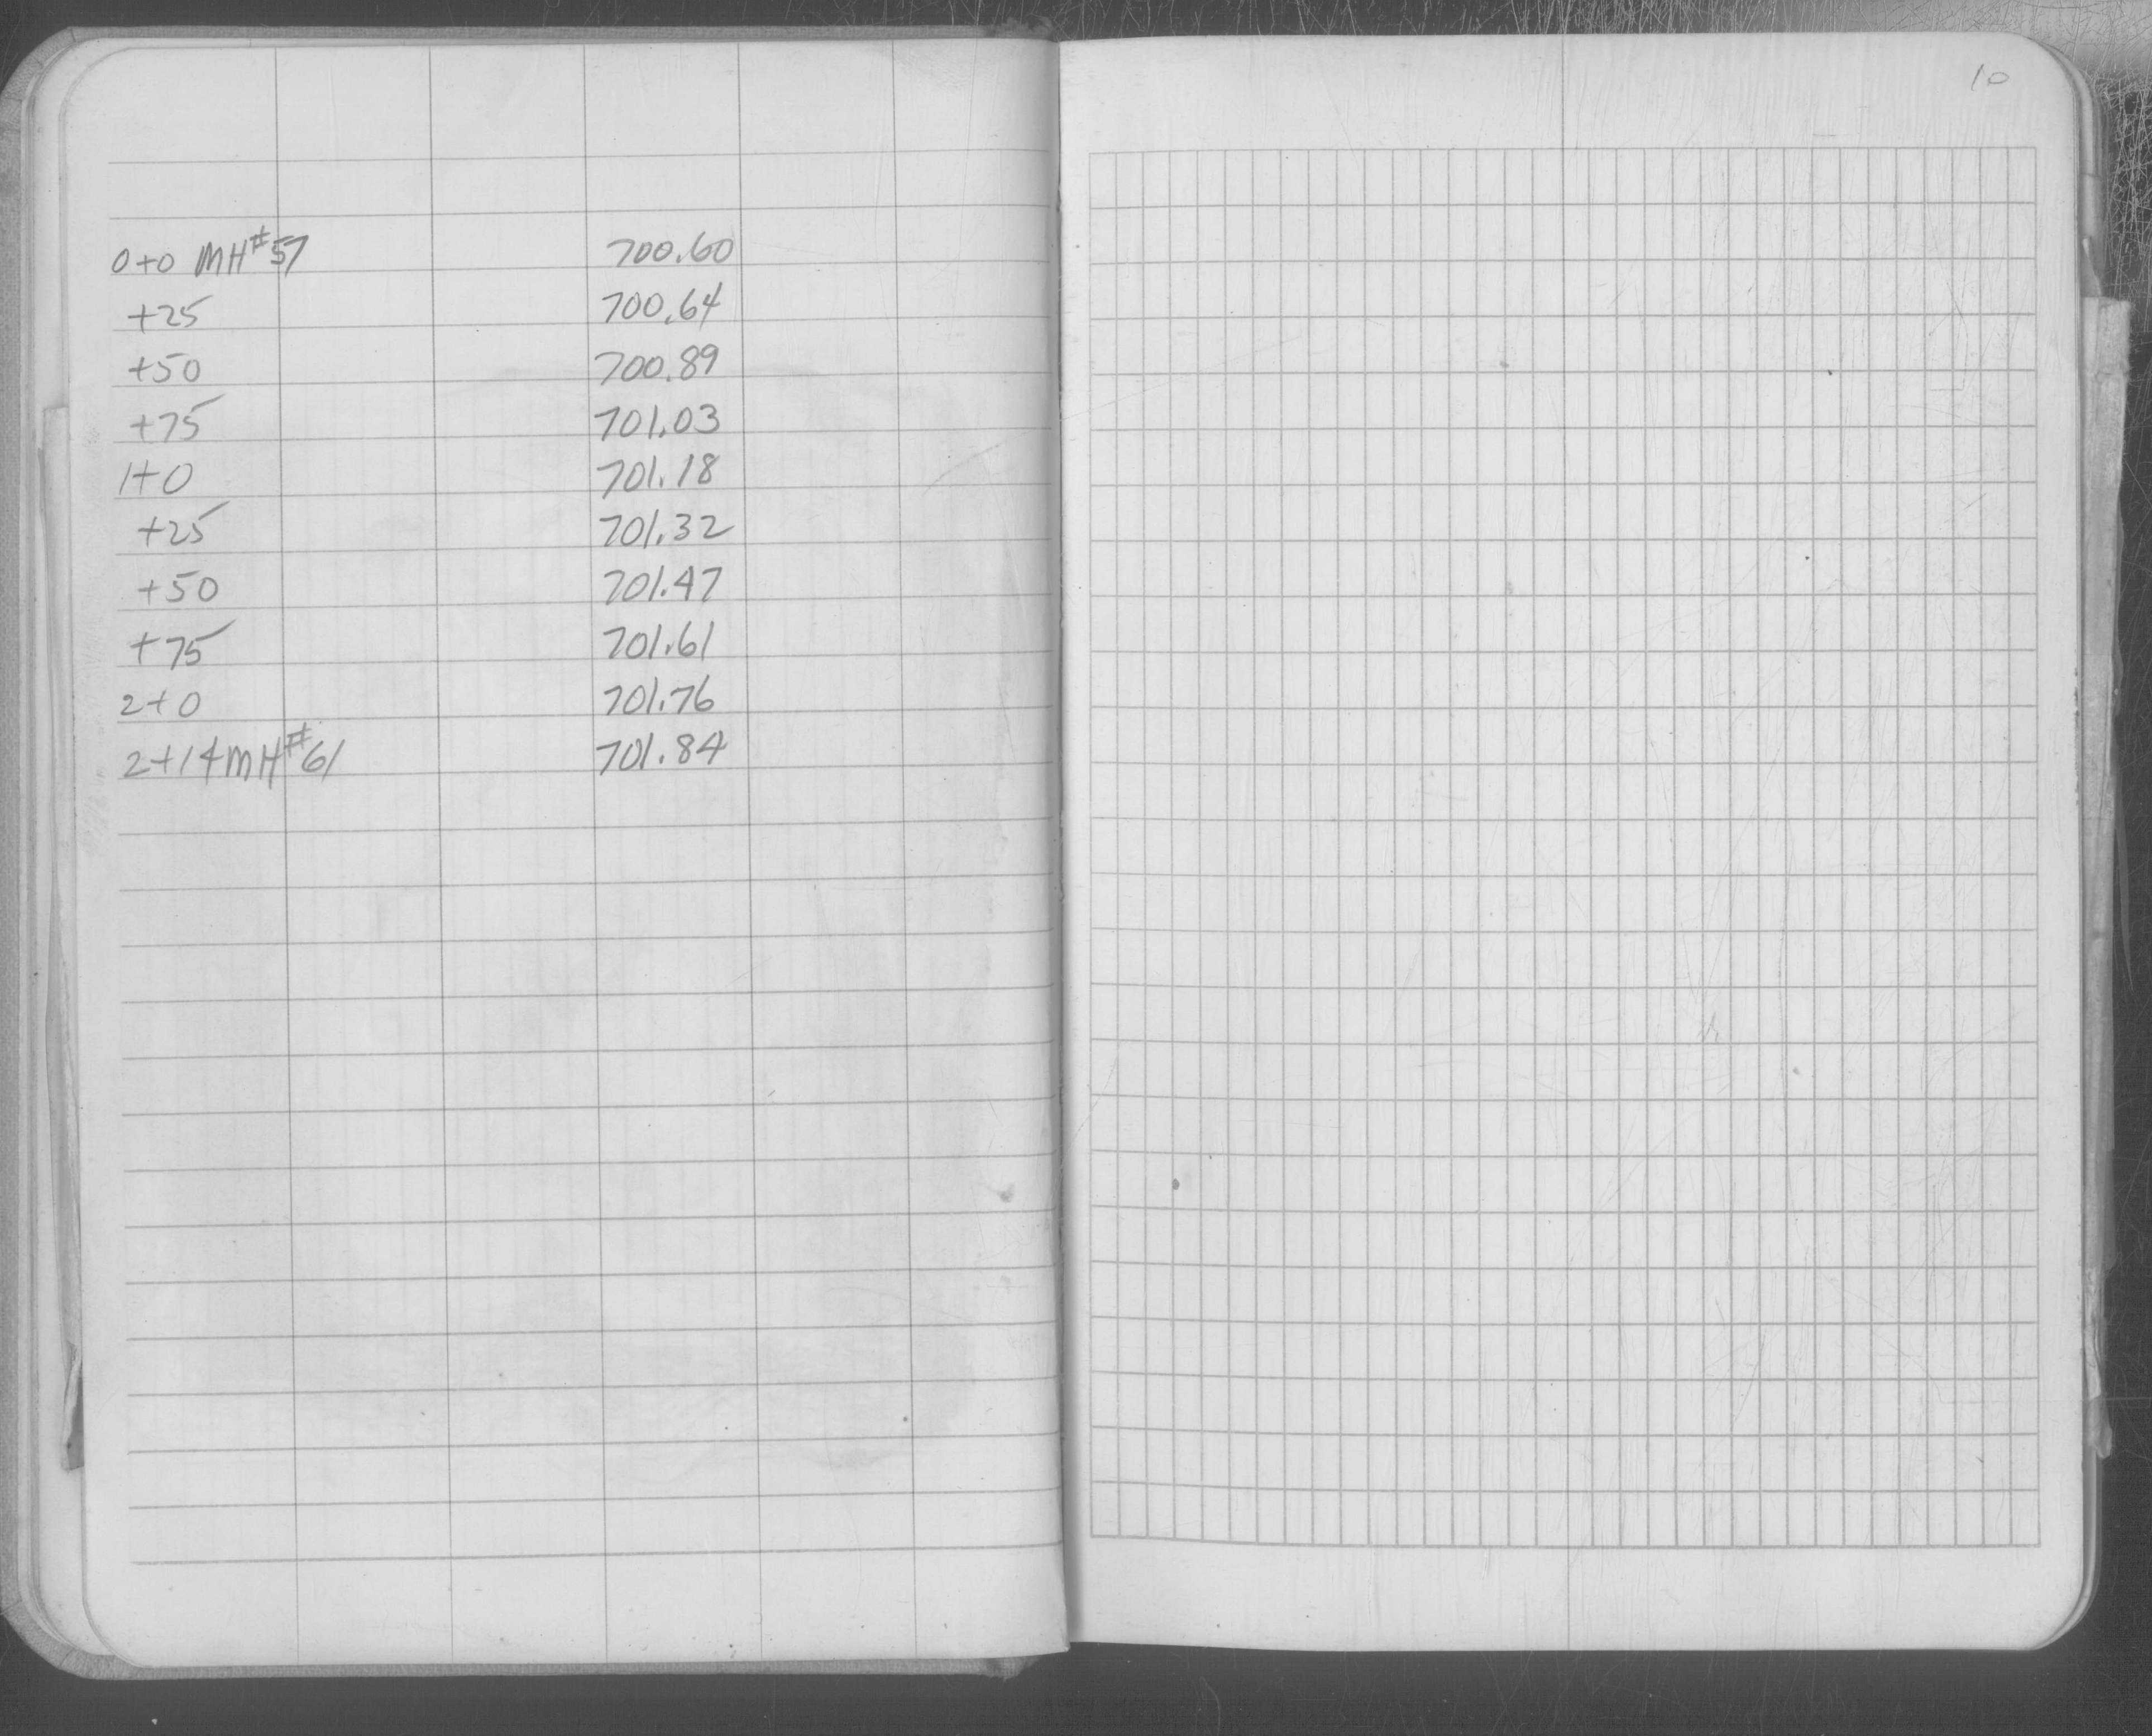 10
0+0 MH#57 700.60
+25 700.64
+50 700.89
+75 701.03
1+0 701.18
+25 701.32
+50 701.47
+75 701.61
2+0 701.76
2+14 MH#61 701.84